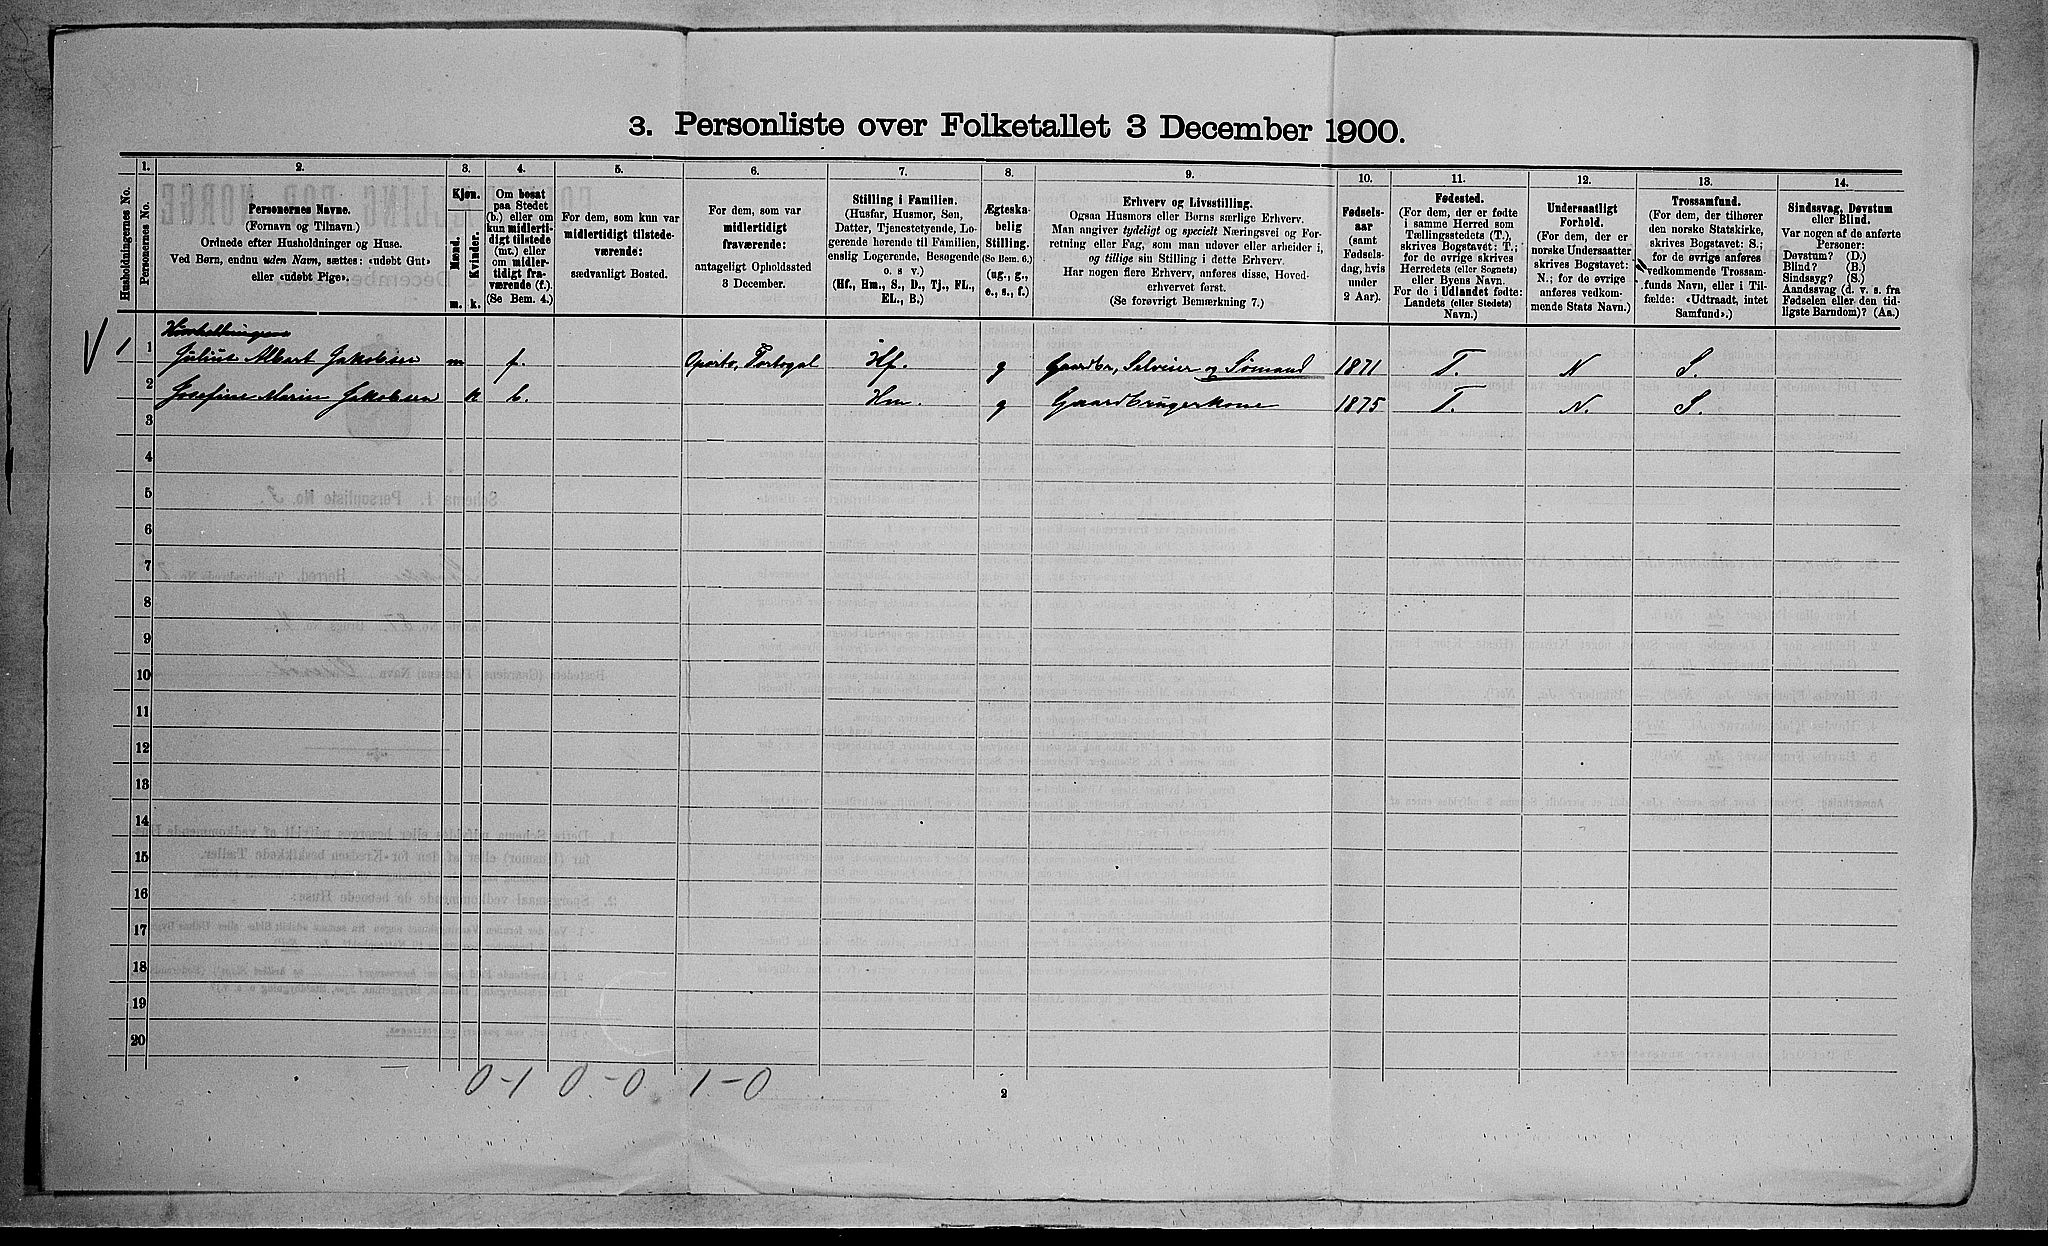 3. Personliste over Folketallet 3 December 1900.
Husholdningernes No.
1.
Personernes No.
2.
Personernes Navne.
(Fornavn og Tilnavn.)
Ordnede efter Husholdninger og Huse.
Ved Børn, endnu uden Navn, sættes: «udøbt Gut»
eller «udøbt Pige».
3.
Kjøn.
Mænd.
Kvinder.
m. k.
4.
Om bosat
paa Stedet
(b.) eller om
kun midlerti-
digt tilstede
(mt.) eller
om midler-
tidigt fra-
værende (f.).
(Se Bem. 4.)
5.
For dem, som kun var
midlertidigt tilstede-
værende:
sædvanligt Bosted.
6.
For dem, som var
midlertidigt
fraværende:
antageligt Opholdssted
3 December.
7.
Stilling i Familien.
(Husfar, Husmor, Søn,
Datter, Tjenestetyende, Lo-
gerende hørende til Familien,
enslig Logerende, Besøgende
o. s v.)
(Hf., Hm., S., D., Tj., FL.,
EL., B.)
8.
Ægteska-
belig
Stilling.
(Se Bem. 6.)
(ug., g.,
e., s., f.)
9.
Erhverv og Livsstilling.
Ogsaa Husmors eller Børns særlige Erhverv.
Man angiver tydeligt og specielt Næringsvei og For-
retning eller Fag, som man udøver eller arbeider i,
og tillige sin Stilling i dette Erhverv.
Har nogen flere Erhverv, anføres disse, Hoved-
erhvervet først.
(Se forøvrigt Bemærkning 7.)
10.
Fødsels-
aar
(samt
Fødsels-
dag, hvis
under
2 Aar).
11.
Fødested.
(For dem, der er fødte
i samme Herred som
Tællingsstedets (T.),
skrives Bogstavet: T.;
for de øvrige skrives
Herredets (eller Sognets)
eller Byens Navn.
For de i Udlandet fødte:
Landets (eller Stedets)
Navn.)
12.
Undersaatligt
Forhold.
(For dem, der er
norske Undersaatter
skrives Bogstavet:
N.; for de øvrige
anføres vedkom-
mende Stats Navn.)
13.
Trossamfund.
(For dem, der tilhører
den norske Statskirke,
skrives Bogstavet: S.;
for de øvrige anføres
vedkommende Trossam-
funds Navn, eller i Til-
fælde: «Udtraadt, intet
Samfund».)
14.
Sindssvag, Døvstum
eller Blind.
Var nogen af de anførte
Personer:
Døvstum? (D.)
Blind? (B.)
Sindssyg? (S.)
Aandssvag (d. v. s. fra
Fødselen eller den tid-
ligste Barndom)? (Aa.)
1 1 Julius Albert Jakobsen m f. Oporto, Portogal Hf. g Gaardbr, Selveier og Sømand 1871 T. N S.
2 Josefine Marie Jakobsen k b. Hm. g Gaardbrugerkone 1875 T. N. S.
3
4
5
6
7
8
9
10
11
12
13
14
15
16
17
18
19
20
0-1 0-0 1-0
2